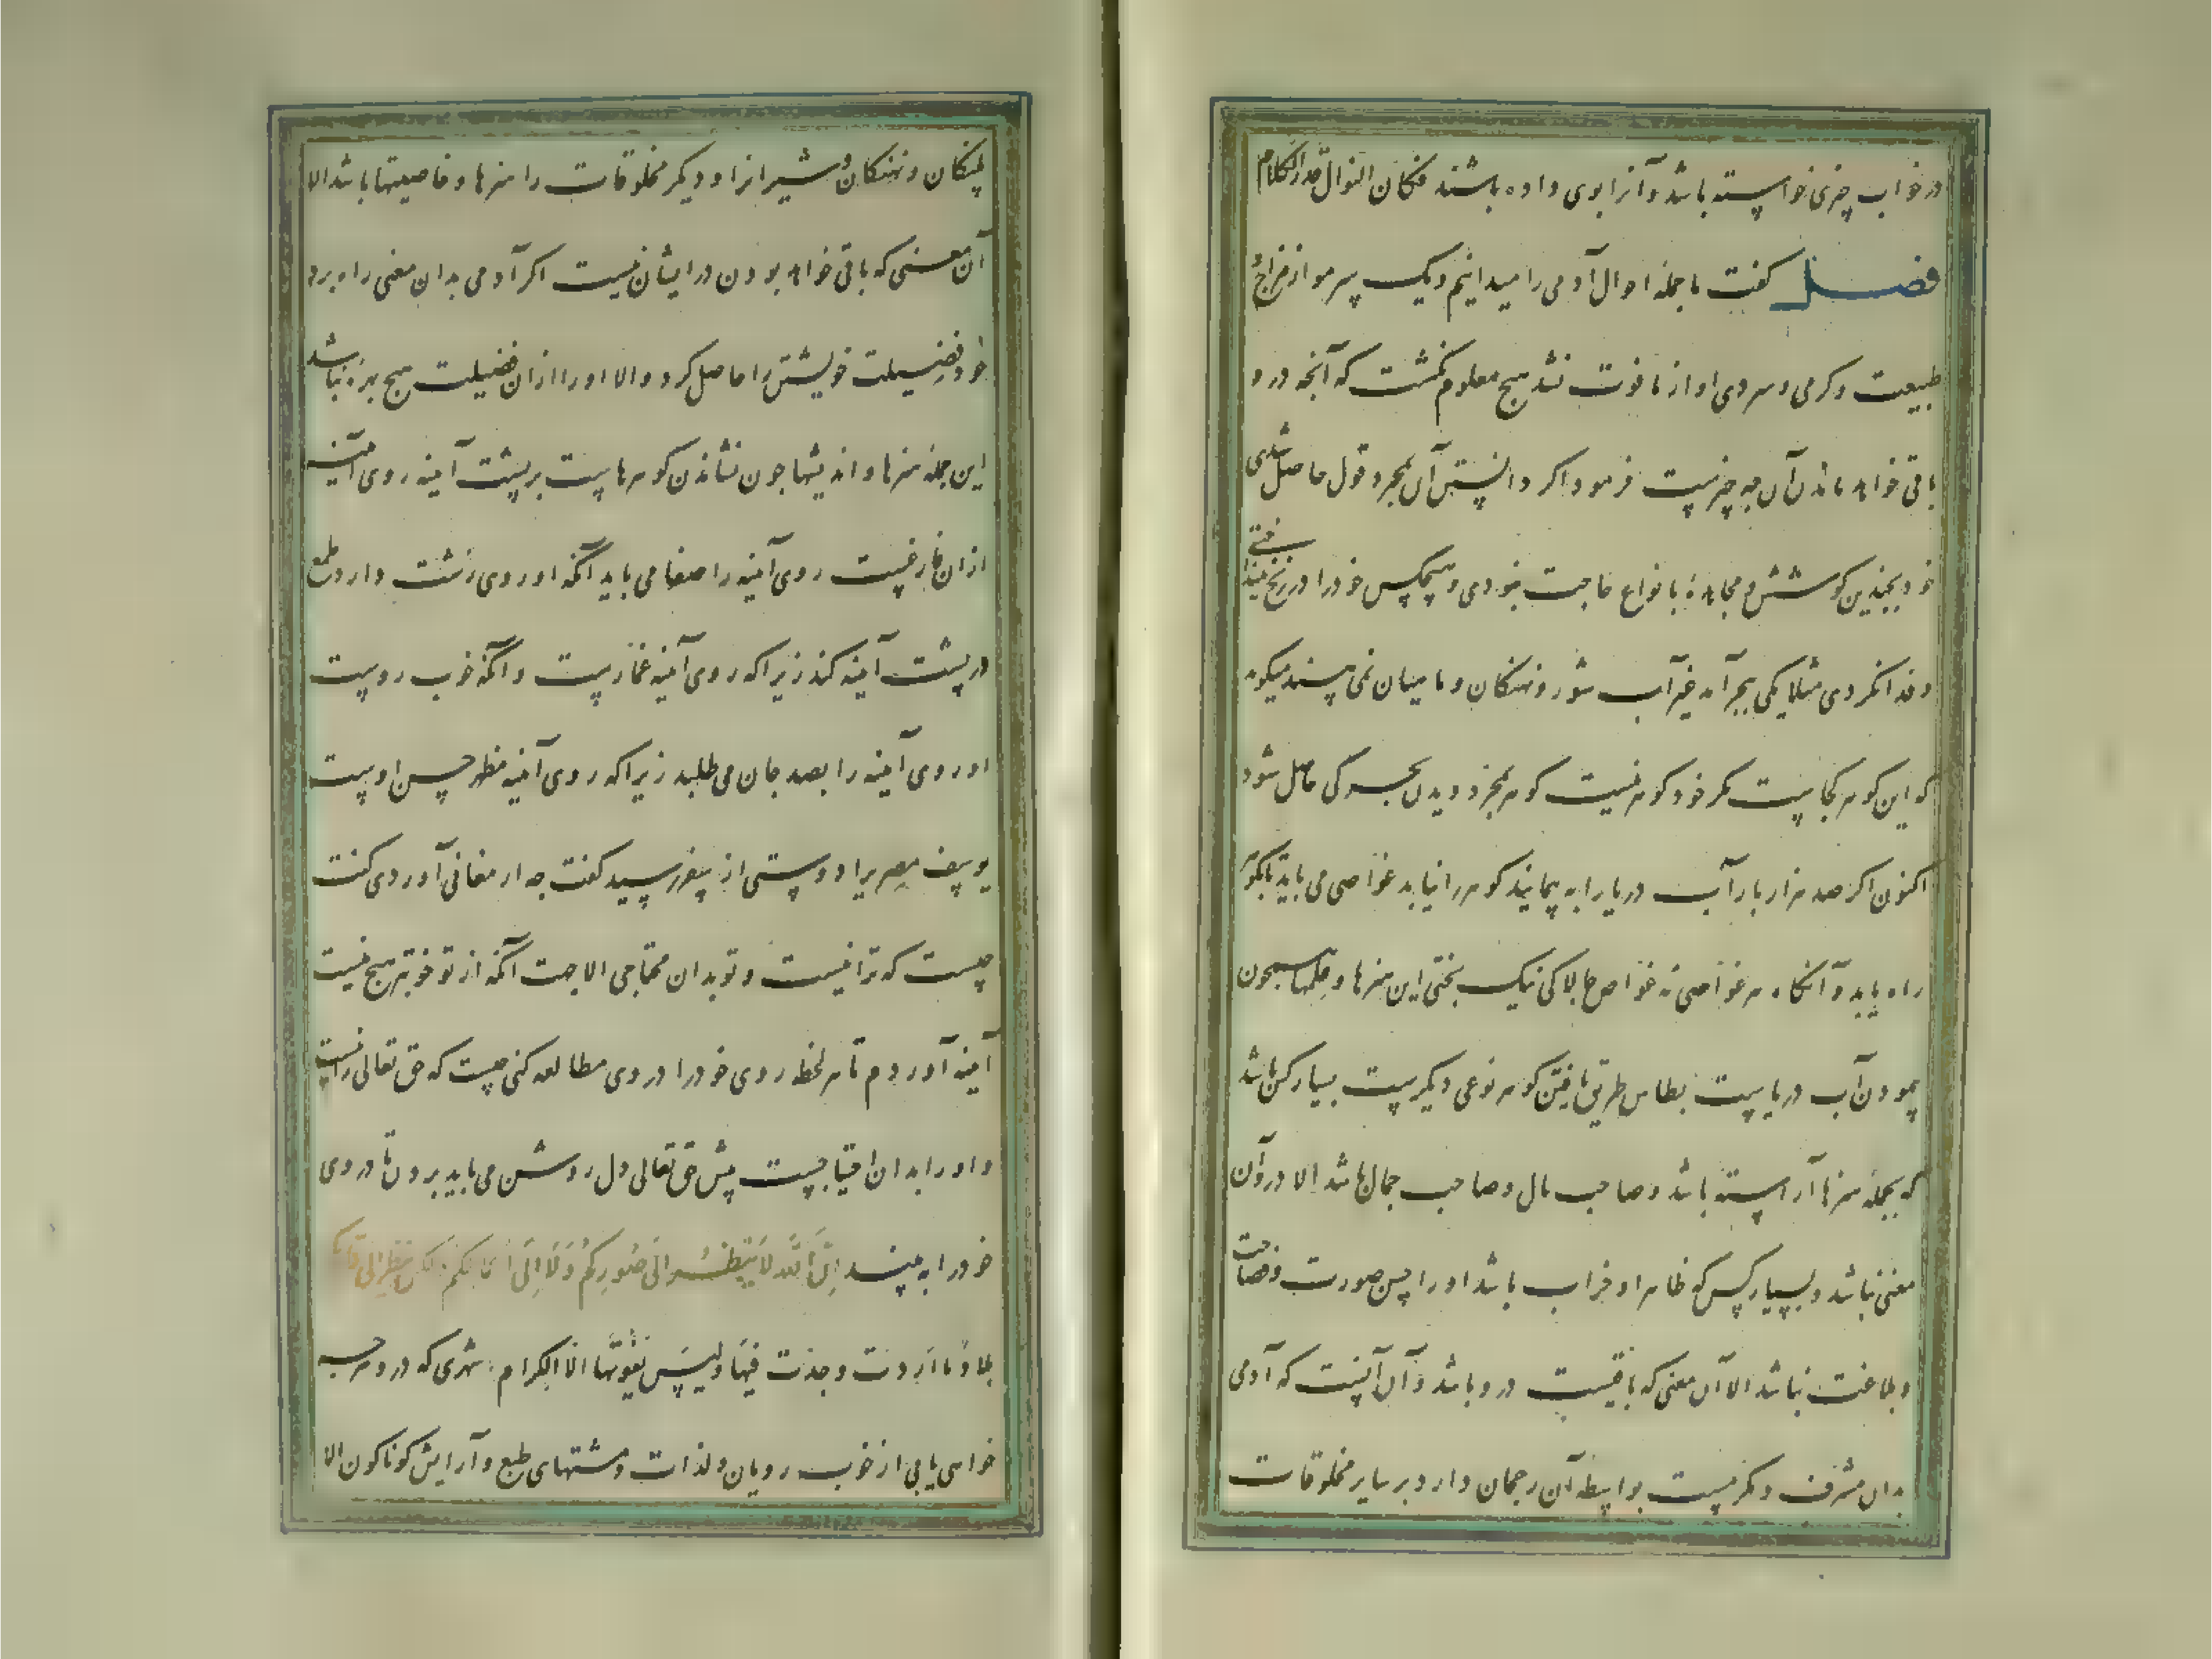 در خواب چیزی خواسته باشد و آنرا بوی داده باشند فکان النوال قدر الکلام
فصل کفت ما جملهٔ احوال آدمی را میدانیم و یک سر مو از مزاج و
طبیعت و کرمی و سردی او از ما فوت نشد هیچ معلوم نکشت که آنچه درو
باقی خواهد ماندن آن چه چیزست فرمود اکر دانستن آن بمجرد قول حاصل شدی
خود بچندین کوشش و مجاهدهٔ بانواع حاجت نبودی و هیچکس خود را در رنج نینداختی
و فدا نکردی مثلا یکی ببحر آمد غیر آب شور و نهنکان و ماهیان نمی‌بیند میکوید
که این کوهر کجاست مکر خود کوهر نیست کوهر بمجرد دیدن بحر کی حاصل شود
اکنون اکر صد هزار بار آب دریا را به پیمایند کوهر را نیابد غواصی می باید تا بکوهر
راه یابد و آنکاه هر غواصی نه غواص چالاکی نیک بختی این هنرها و علمها همچون
پیمودن آب دریاست بطاس طریق یافتن کوهر نوعی دیکرست بسیار کس باشد
که بجمله هنرها آراسته باشد و صاحب مال و صاحب جمال باشد الا درو آن
معنی نباشد و بسیار کس که ظاهر او خراب باشد او را حسن صورت و فصاحت
و بلاغت نباشد الا آن معنی که باقیست درو باشد و آن آنست که آدمی
بدان مشرف و مکرمست بواسطهٔ آن رجحان دارد بر سایر مخلوقات
پلنکان و نهنکان و شیرانرا و دیکر مخلوقات را هنرها و خاصیتها باشد الا
آن معنی که باقی خواهد بودن در ایشان نیست اکر آدمی بدان معنی راه برد
خود فضیلت خویشتن را حاصل کرد و والا او را ازان فضیلت هیچ بهره نباشد
این جمله هنرها و اندیشها چون نشاندن کوهرهاست بر پشت آینه روی آینه
ازان فارغست روی آینه را صفا می باید آنکه او روی زشت دارد طمع
در پشت آینه کند زیرا که روی آینه غمازست و آنکه خوب روست
او روی آینه را بصد جان می طلبد زیرا که روی آینه مظهر حسن اوست
یوسف مصریرا دوستی از سفر رسید کفت چه ارمغانی آوردی کفت
چیست که ترا نیست و تو بدان محتاجی الا جهت آنکه از تو خوبتر هیچ نیست
آینه آوردم تا هر لحظه روی خود را در وی مطالعه کنی چیست که حق تعالی را نیست
و او را بدان احتیاجست پیش حق تعالی دل روشن می باید بردن تا در وی
خود را به بیند اِنَّ اللّٰهَ لَا یَنْظُرُ اِلَی صُوَرِکُمْ وَلَا اِلَی اَعْمَالِکُمْ ولکن ینظر الی قلوبکم
بلادٌ ما اَردت وجدت فیها ولیس یفوتها الّا الکرام شهری که درو هرچه
خواهی یابی از خوب رویان و لذات و مشتهای طبع و آرایش کوناکون الا